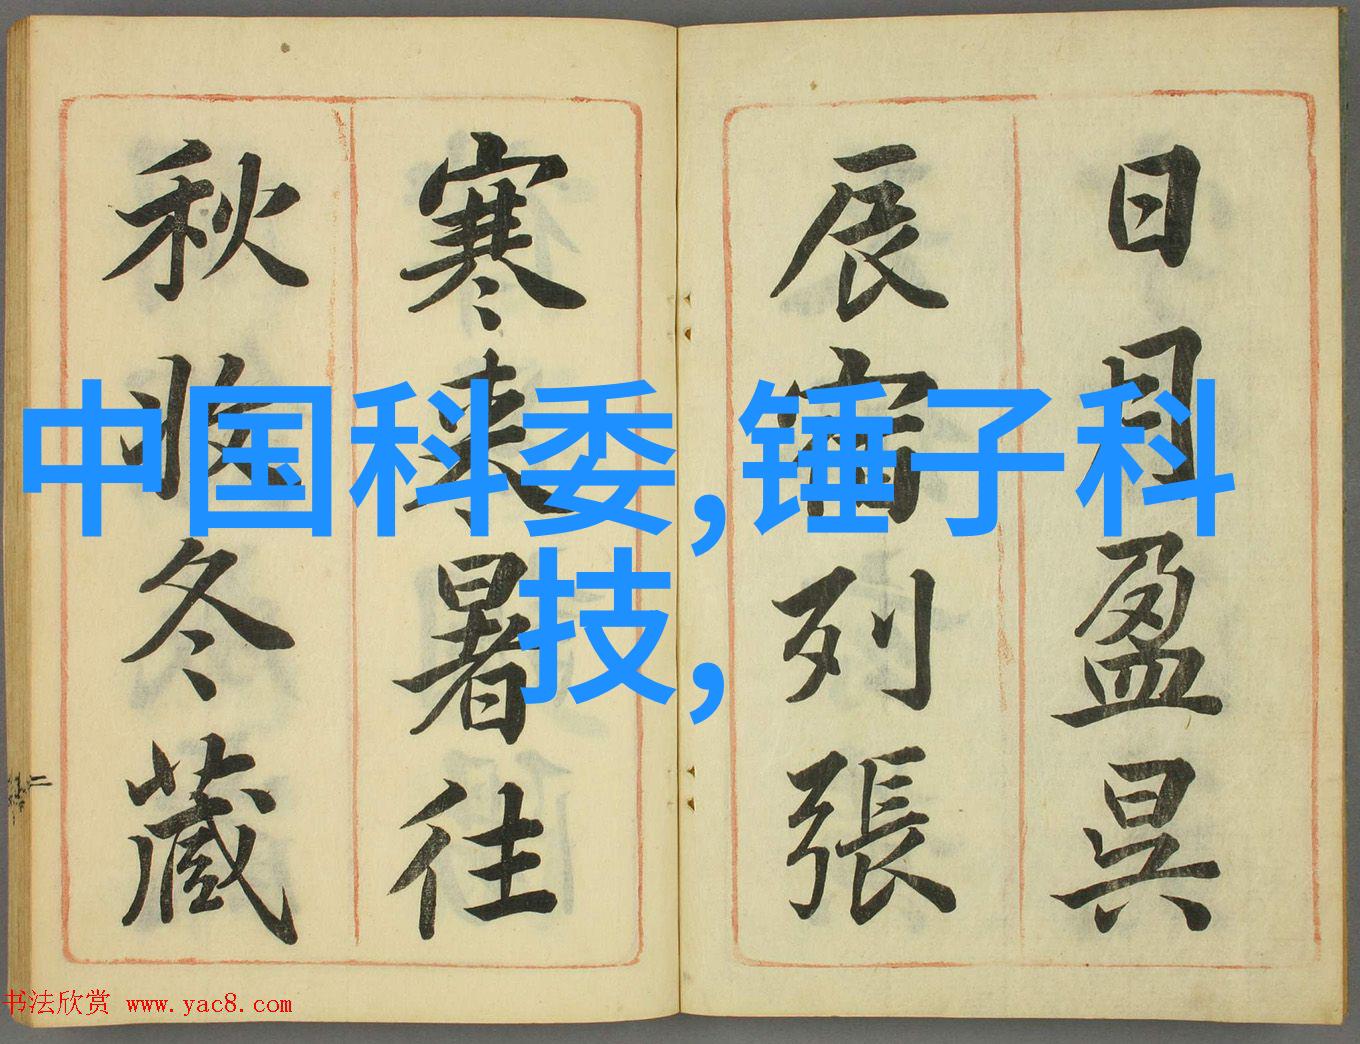 日月盈昃
辰宿列張
寒来暑往
秋收冬藏
中国科委,锤子科
技,
书法欣赏 www.yac8.com